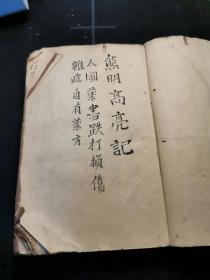 熊明高亮記
人図藥書跌打損傷
雜症自有藥方